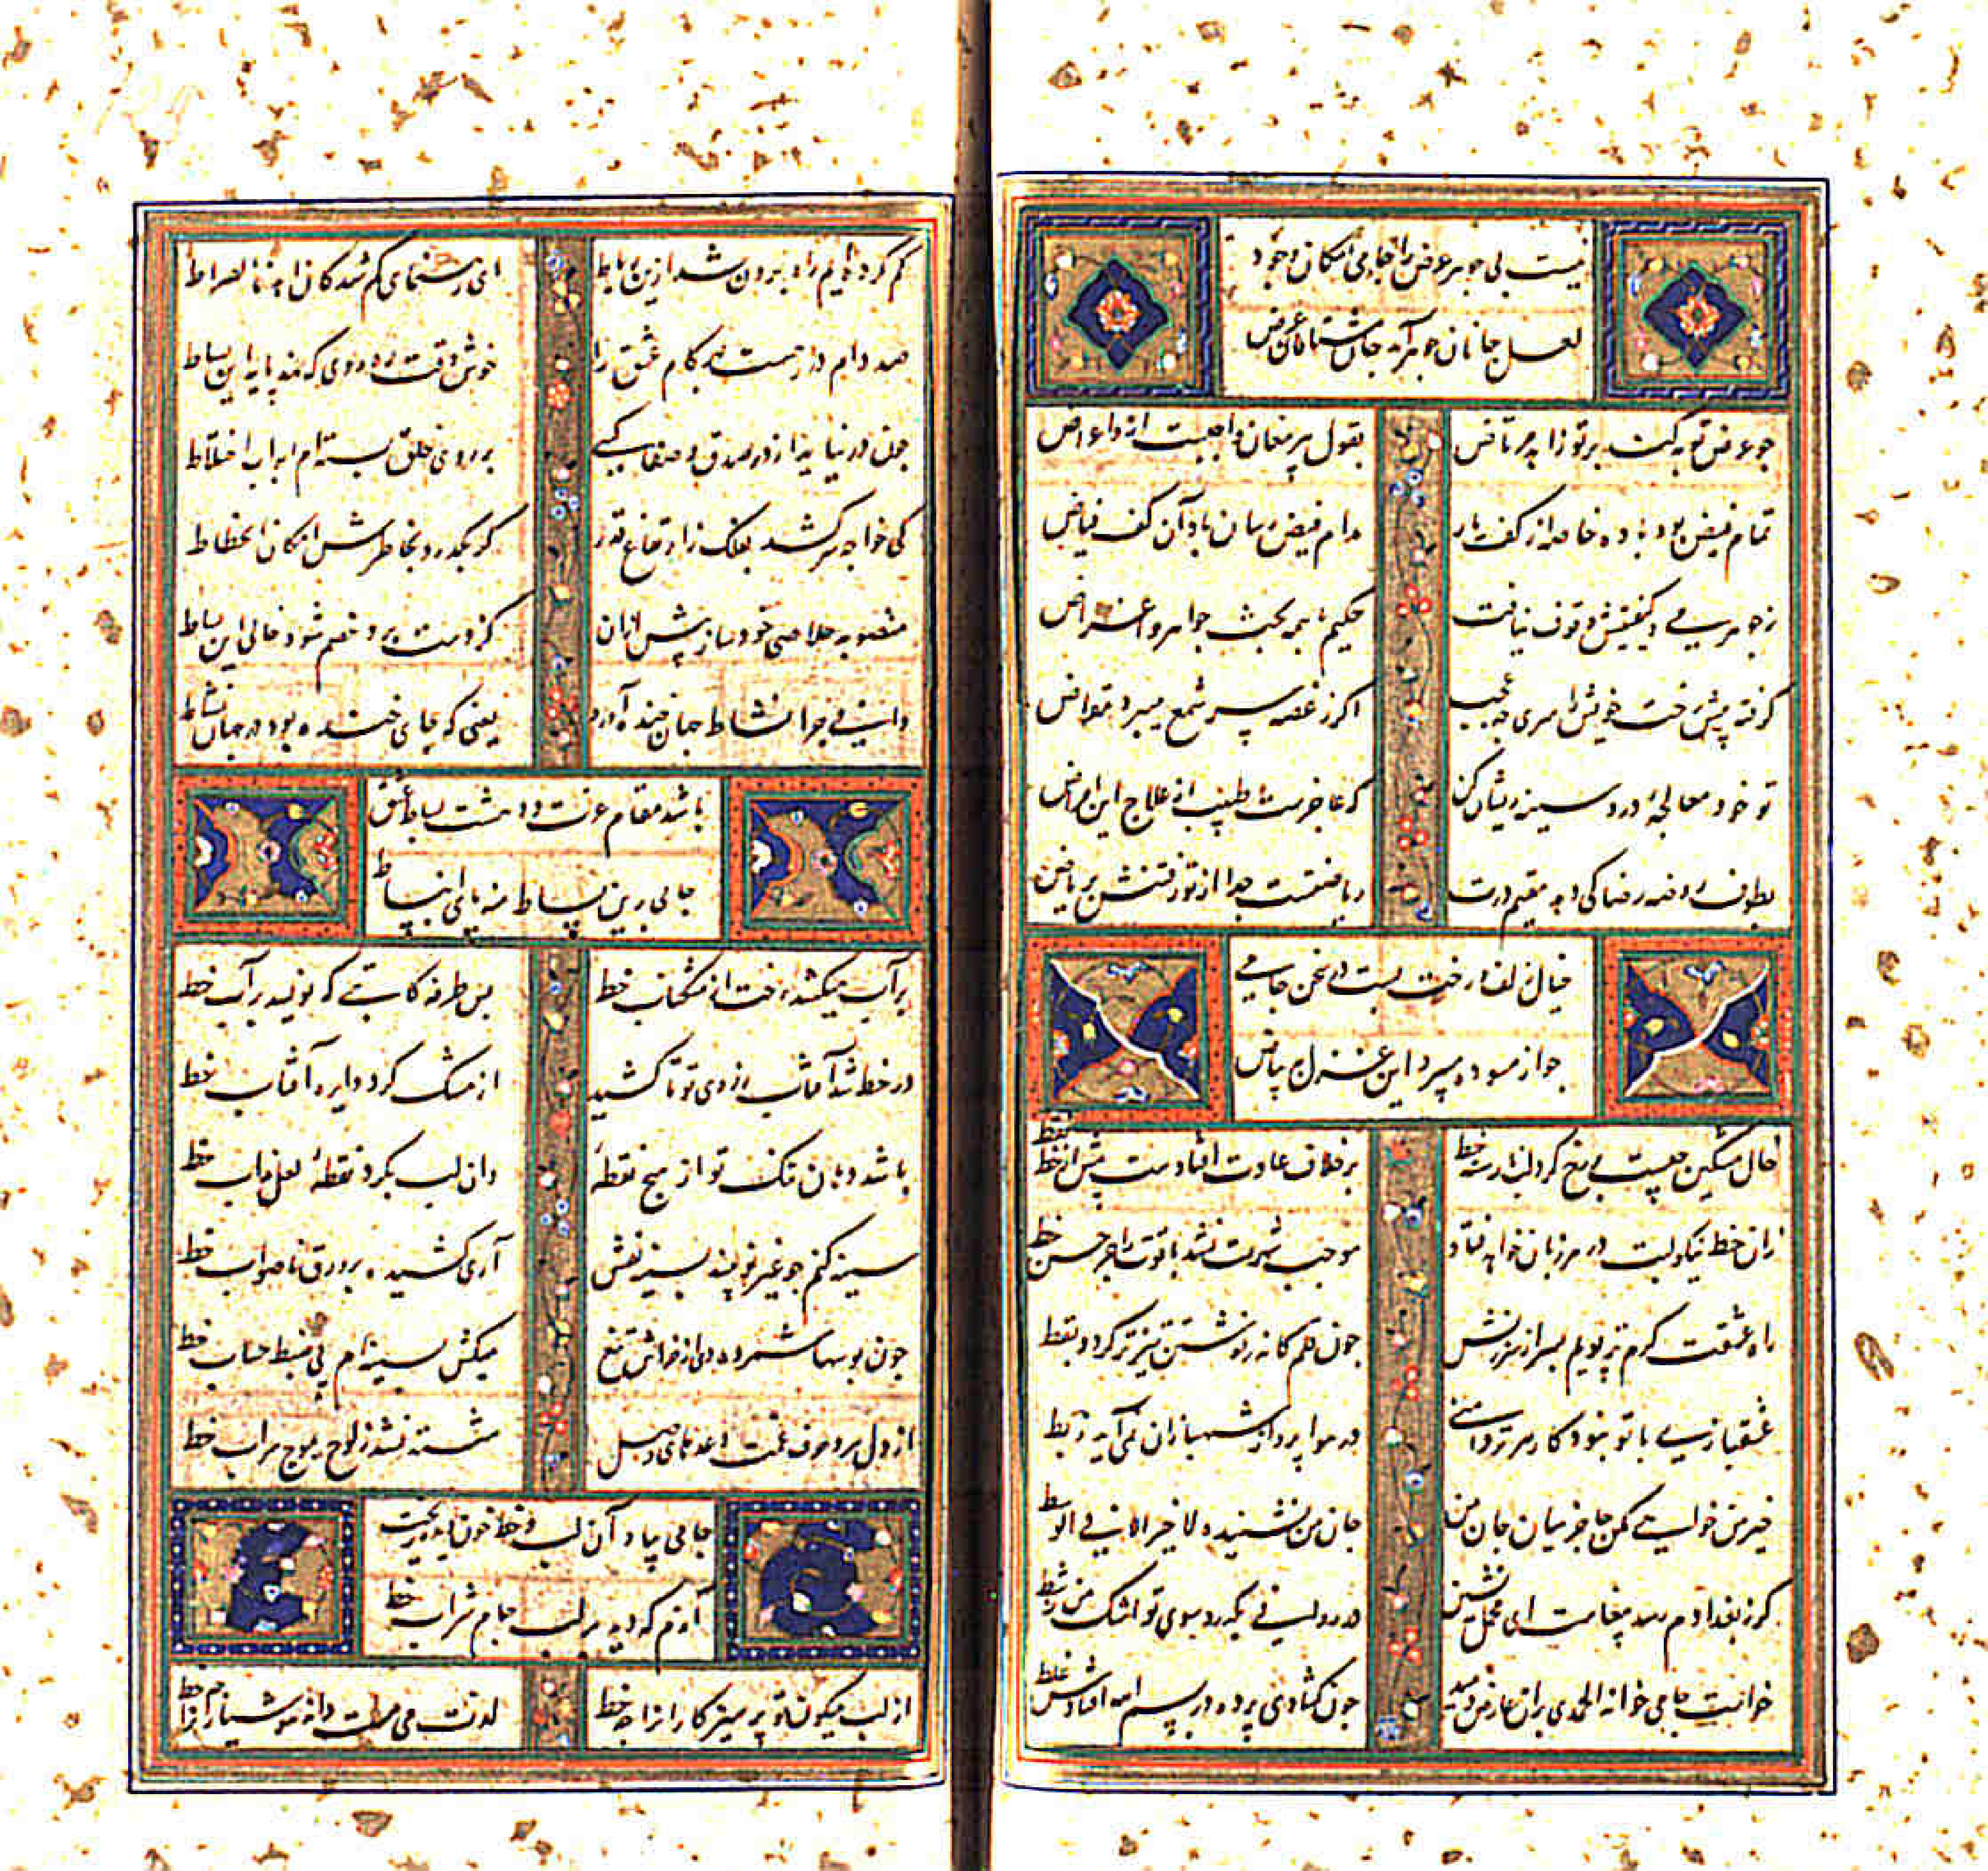 نیست بی جوهر عرض را جامی امکان وجود
لعل جانان جوهر آمد جان مشتاقان عرض
جو عرض توبه کند بر تو زاهد مرتاض
بقول پیر مغان واجبست ازو اعراض
تمام فیض بود باده خاصه از کف یار
مدام فیض رسان باد آن کف فیاض
ز جوهر می و کیفیتش وقوف نیافت
حکیم با همه بحث جواهر و اعراض
گرفته پیش رخت خویش را سری چه عجب
اگر ز غصه سر شمع میبرد مقراض
تو خود معالجهٔ درد سینه ریشان کن
که عاجزست طبیب از علاج این امراض
بطوف روضه رضا کی دهد مقیم درت
ریاضتست جدا از تو رفتنش بریاض
خیال زلف و رخت بست در سخن جامی
جو از مسوده میبرد این غزل ببیاض
خال مشکین چیست بی رخ کرد لب نارسته خط
بر خلاف عادت افتادست پیش از خط نقط
زان خط نیکو لبت در هر زبان خواهد فتاد
موجب شهرت نشد یاقوت را جز حسن خط
راه عشقت گرم تر پویم بسر از سرزنش
جون قلم کانه نوشتن تیزتر گردد بقط
عشقبازی با تو نبود کار هر تردامنی
در هوا پرواز شهبازان نمی آید ز بط
خیر من خواهی مکن جا جز میان جان من
جان من نشنیده لا خیر الا فی الوسط
گر ز بغدادم رسد پیغامت ای محمل نشین
در رود لیفی بگه رد سوی تو اشک من ز شط
خوانیت جامی خواند الحمدی بران عارض دمید
جون گشادی پرده در بسم الله افتادش غلط
گم کرده ایم راه برون شد ازین رباط
ای رهنمای گم شدگان اهدنا الصراط
صد دام در رهست بهر گام عشق را
خوش وقت رهروی که نهد پا به این بساط
جون در نیاید از در صدق و صفا کسی
بر روی خلق بسته ام ابواب اختلاط
کی خواجه سر کشد بفلک ز ارتفاع قدر
گر بگذرد بخاطرش امکان انحطاط
منصوبه خلاصی خود ساز پیش ازان
کز دست برد خصم شود خالی این بساط
دانی جرا نشاط جهان خنده آورد
یعنی که جای خنده بود در جهان نشاط
باشد مقام عزت و دهشت بساط عشق
جامی برین بساط منه پای انبساط
بر آب میکشد رخت از مشکناب خط
بس طرفه کاتبی که نویسد بر آب خط
در خط شد آفتاب ز روی تو تا کشید
از مشک گرد دایره آفتاب خط
باشد دهان تنگ تو از میخ نقطهٔ
وان لب بگرد نقطهٔ لعل مذاب خط
سینه کنم جو غیر تو بیند بسینه نقش
آری کشیده به ورق ناصواب خط
جون بوسها شمرده دهی از خراش تیغ
میکش بسینه ام پی ضبط حساب خط
از دل نبرد حرف غمت وعدهای وصل
شسته نشد ز لوح بموج سراب خط
جامی بیاد آن لب و خط خون ز دیده ریخت
آندم که دید بر لب جام شراب خط
از لب میگون تو پرهیزکاران را چه خط
لذت می مست داند هوشیاران را چه خط